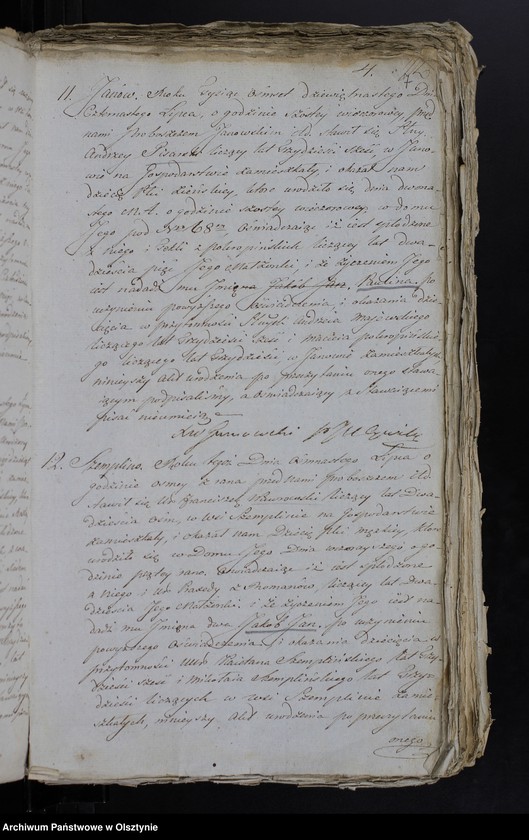 4.
11. Janów. Roku Tysiąc Ośmset Dziewiętnastego Dnia
Czternastego Lipca, o godzinie szostey wieczorowey, przed
nami Proboszczem Janowskim stawił się
Andrzey Pisarski liczący lat Trzydzieści sześć w Jano-
wie na Gospodarstwie zamieszkały, i okazał nam
dziecię płci żeńskiey, które urodziło się dnia dwuna-
stego m. b. o godzinie szostey wieczorowey w domu
Jego pod Nrem 68m, oświadczaiąc iż iest spłodzone
z niego i Tekli z liczącey lat dwa-
dzieścia pięć Jego Małżonki, i że życzeniem Jego
iest nadać mu Imię Paulina, po
uczynieniu powyższego oświadczenia, i okazania dzie-
cięcia w przytomności Andrzeia
liczącego lat Trzydzieści sześć i Macieia
go liczącego lat Trzydzieści, w Janowie zamieszkałych
ninieyszy akt urodzenia po przeczytaniu onego stawa-
iącym podpisaliśmy, a oświadczaiący z stawaiącemi
pisać nieumieią
12. Szemplino. Roku tegoż Dnia ośmnastego Lipca o
godzinie osmey z rana przed nami Proboszczem
stawił się Ur. Franciszek liczący lat Dwa-
dzieścia osm, w wsi Szemplinie na Gospodarstwie
zamieszkały, i okazał nam Dziecię płci męskiey, które
urodziło się w Domu Jego Dnia wczorayszego o go-
dzinie piątey rano, oświadczaiąc iż iest spłodzone
z niego i Ur. z liczącey lat dwa-
dzieścia Jego Małżonki, i że życzeniem Jego iest na-
dać mu Imiona dwa Jakób Jan, po uczynieniu
powyższego oświadczenia i okazania Dziecięcia w
przytomności Kaietana Szemplińskiego lat Trzy-
dzieści sześć i Mikołaia Szemplińskiego lat Trzy-
dzieści liczących w wsi Szemplinie zamie-
szkałych, ninieyszy akt urodzenia po przeczytaniu
onego
Archiwum Państwowe w Olsztynie